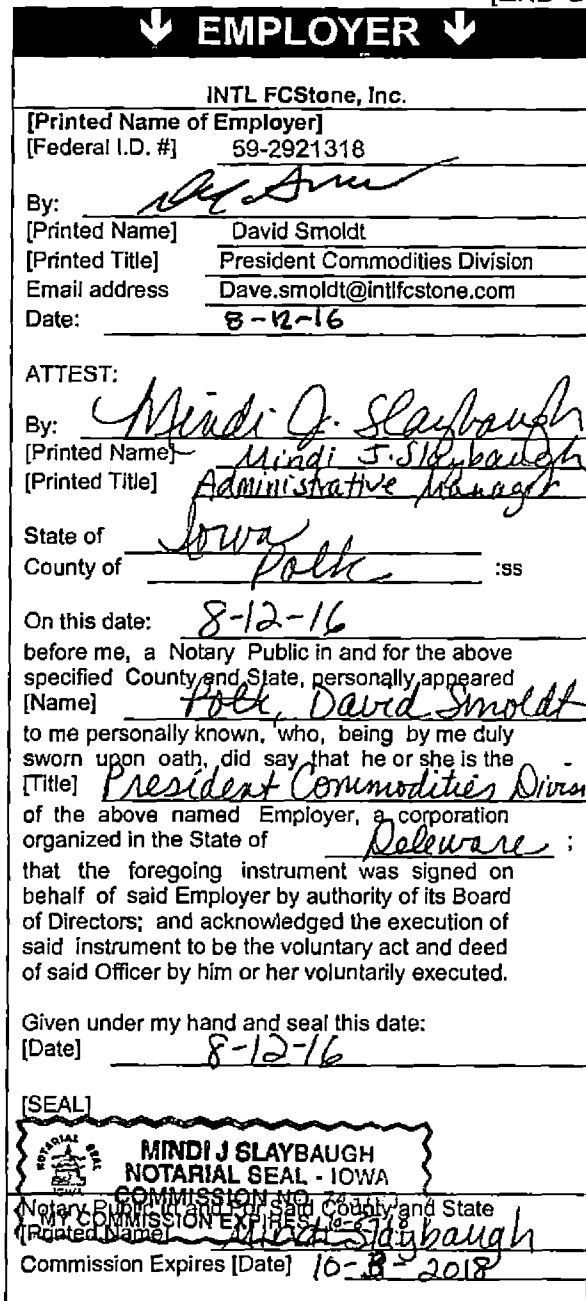 ↓ EMPLOYER ↓
INTL FCStone, Inc.
[Printed Name of Employer]
[Federal I.D. #] 59-2921318
By:
[Printed Name] David Smoldt
[Printed Title] President Commodities Division
Email address Dave.smoldt@intlfcstone.com
Date: 8-12-16
ATTEST:
By: Mindi J. Slaybaugh
[Printed Name] Mindi J. Slaybaugh
[Printed Title] Administrative Manager
State of Iowa
County of Polk :ss
On this date: 8-12-16
before me, a Notary Public in and for the above
specified County and State, personally appeared
[Name] Polk, David Smoldt
to me personally known, who, being by me duly
sworn upon oath, did say that he or she is the
[Title] President Commodities Divisn
of the above named Employer, a corporation
organized in the State of Deleware ;
that the foregoing instrument was signed on
behalf of said Employer by authority of its Board
of Directors; and acknowledged the execution of
said instrument to be the voluntary act and deed
of said Officer by him or her voluntarily executed.
Given under my hand and seal this date:
[Date] 8-12-16
[SEAL]
NOTARIAL SEAL
IOWA
MINDI J SLAYBAUGH
NOTARIAL SEAL - IOWA
COMMISSION NO.
Notary Public In and For Said County and State
MY COMMISSION EXPIRES
[Printed Name] Mindi Slaybaugh
Commission Expires [Date] 10-8-2018